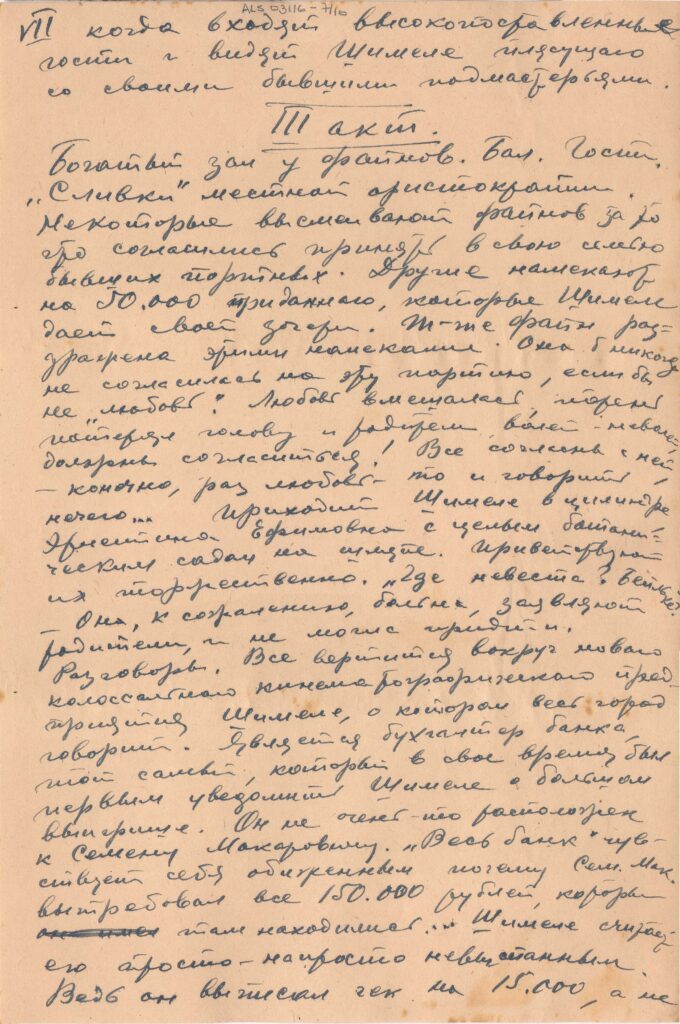 ALS 03116-7/10
VII когда входят высокопоставленные
гости и видят Шимеле пляшущаго
со своими бывшими подмастерьями.
III акт.
Богатый зал у Файнов. Бал. Гости.
„Сливки" местной аристократии.
Некоторые высмеивают Файнов за то
что согласились принять в свою семью
бывших портных. Другие намекают
на 50.000 приданнаго, которые Шимеле
дает своей дочери. М-же Файн раз-
дражена этими намеками. Она б никогда
не согласилась на эту партию, если бы
не „любовь". Любовь вмешалась, парень
потерял голову и родители волей-неволей
должны согласиться! Все согласны с ней,
– конечно, раз любовь – то и говорить
нечего... Приходит Шимеле в цилиндре,
Эрнестина Ефимовна с целым ботани-
ческим садом на шляпе. Приветствуют
их торжественно. „Где невеста? Бейльке?
– Она, к сожалению, больна, заявляют
родители, и не могла придти.
Разговоры. Все вертится вокруг новаго
колоссальнаго кинематографическаго пред-
приятия Шимеле, о котором весь город
говорит. Является бухгалтер банка,
тот самый, который в свое время был
первым уведомить Шимеле о большом
выигрыше. Он не очень-то расположен
к Семену Макаровичу. „Весь банк" чув-
ствует себя обиженным почему Сем. Мак.
вытребовал все 150.000 рублей, которые
там находились... Шимеле считает
его просто-напросто невыспанным.
Ведь он выписал чек на 15.000, а не